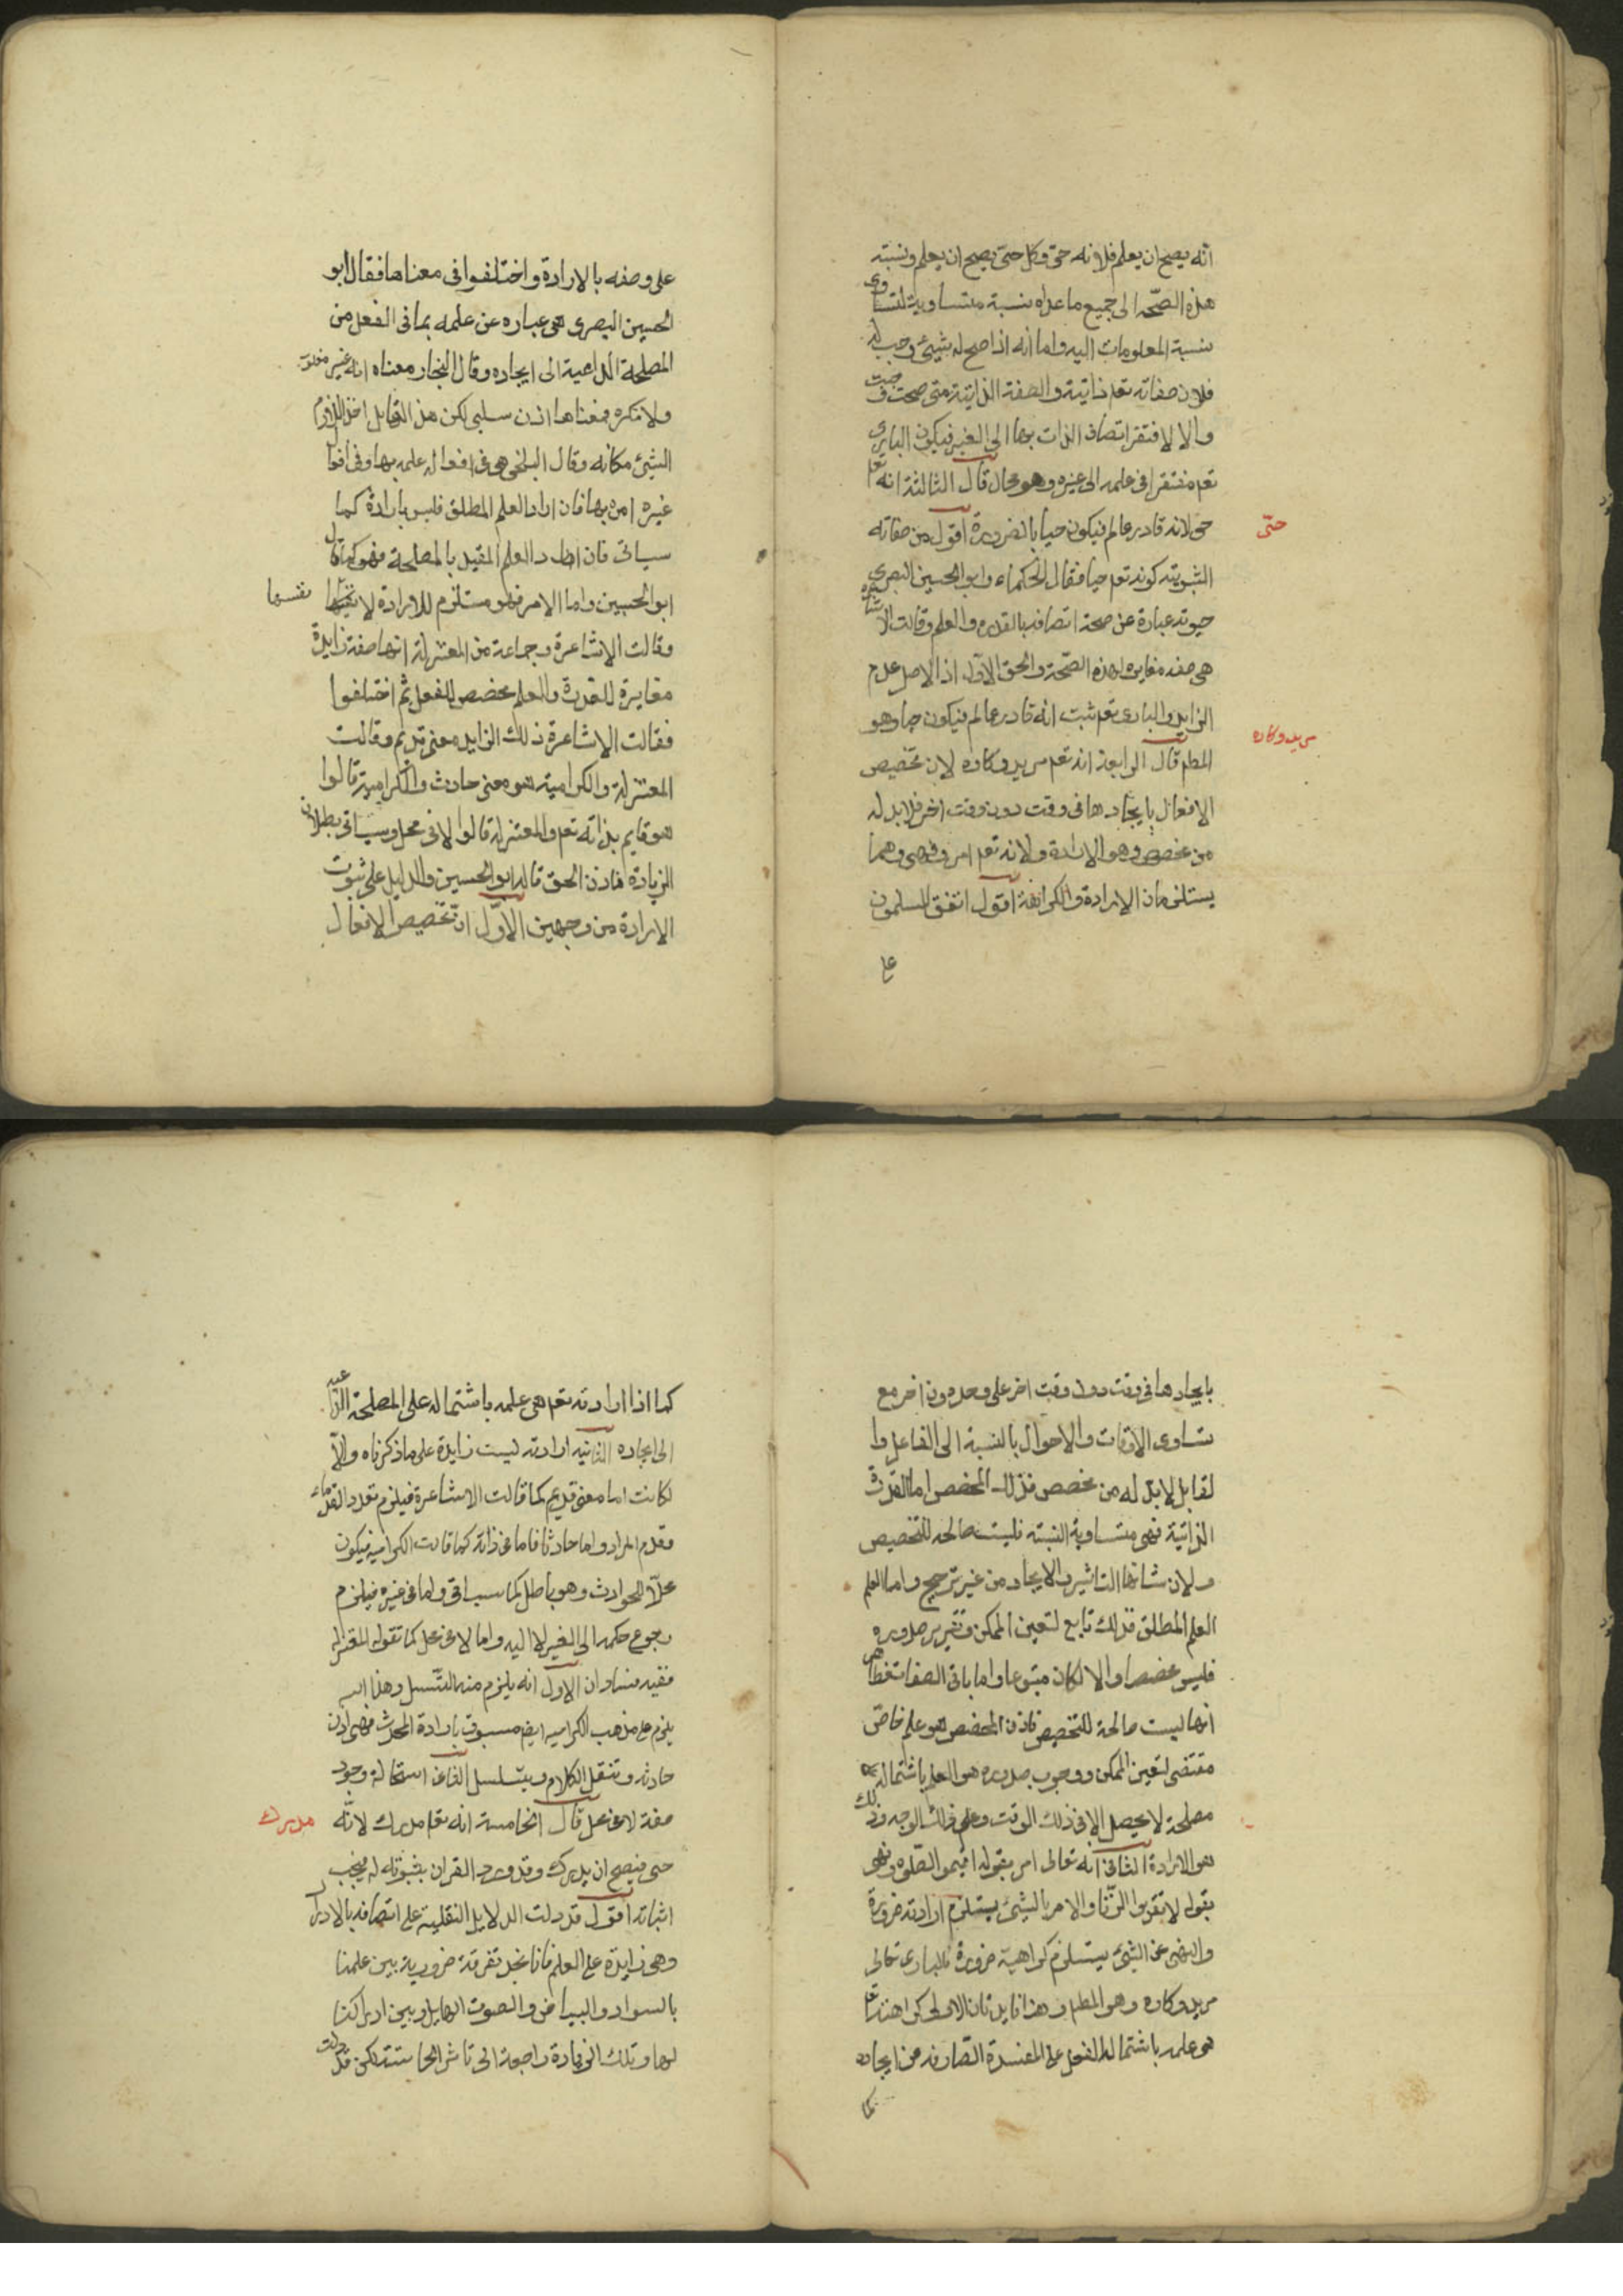 انه يصح ان يعلم فلانه حى وكل حىّ يصح ان يعلم ونسبته
هذه الصحّه الى جميع ما عداه نسبة متساوية لتساوى
نسبة المعلومات اليه واما انه اذا صح له شيئ وجب له
فلان صفاته تعم ذاتية والصفة الذاتية متى صحت وجبت
والا لافتقر اتصاف الذات بها الى الغير فيكون البارى
تعم مفتقرا فى علمه الى غيره وهو محال قال الثالثة انه تعم
حى لانه قادر عالم فيكون حيا بالضرورة اقول من صفاته
حىّ
الثبوتيه كونه تعم حيا فقال الحكماء وابو الحسين البصرى
حيوته عبارة عن صحة اتصافه بالقدره والعلم وقالت الاشاعره
هى صفه مغايره لهذه الصّحة والحق الاول اذ الاصل عدم
الزايد والبارى تعم ثبت انه قادر عالم فيكون حيا وهو
المطم قال الرابعة انه تعم مريد وكاره لان تخصيص
مريد وكاره
الافعال بايجادها فى وقت دون وقت اخر فلا بد له
من مخصص وهو الارادة ولانه تعم امر ونهى وهما
يستلزمان الارادة والكراهة اقول اتفق المسلمون
على وصفه بالارادة واختلفوا فى معناها فقال ابو
الحسين البصرى هى عباره عن علمه بما فى الفعل من
المصلحة الداعية الى ايجاده وقال النجار معناه انه غير مغلوب
ولا مكره فمعناها اذن سلبى لكن هذا القايل اخذ اللازم
الشيئ مكانه وقال البلخى هى فى افعاله علمه بها وفى افعال
غيره امره بها فان اراد العلم المطلق فليس بارادة كما
سياتى فان اراد العلم المقيد بالمصلحة فهو كما قال
ابو الحسين واما الامر فهو مستلزم للارادة لا نفسها
نفسها
وقالت الاشاعرة وجماعة من المعتزلة انها صفة زايدة
مغايرة للقدرة والعلم مخصص للفعل ثم اختلفوا
فقالت الاشاعرة ذلك الزايد معنى قديم وقالت
المعتزلة والكرامية هو معنى حادث والكرامية قالوا
هو قايم بذاته تعم والمعتزلة قالوا لا فى محل وسياتى بطلان
الزيادة فاذن الحق قاله ابو الحسين والدليل على ثبوت
الارادة من وجهين الاوّل انّ تخصيص الافعال
بايجادها فى وقت دون وقت اخر على وجه دون اخر مع
تساوى الاوقات والاحوال بالنسبة الى الفاعل وا
لقابل لا بدّ له من مخصص فذلك المخصص اما القدرة
الذاتية فهى متساوية النسبة فليست صالحه للتخصيص
ولان شانها التاثير والايجاد من غير ترجيح واما العلم
العلم المطلق فذلك تابع لتعين الممكن وتقرير صدوره
فليس مخصصا والا لكان متبوعا واما باقى الصفات فظاهر
انها ليست صالحة للتخصيص فاذن المخصص هو علم خاصّ
مقتضى لتعين الممكن ووجوب صدوره هو العلم باشتماله على
مصلحة لا يحصل الا فى ذلك الوقت وعلى ذلك الوجه وذلك
هو الارادة الثانى انه تعالى امر بقوله اقيموا الصّلوه ونهى
بقوله لا تقربوا الزّنا والامر بالشيئ يستلزم ارادته ضرورة
والنهى عن الشيئ يستلزم كراهية ضرورة فالبارى تعالى
مريد وكاره وهو المطم وهنا فايدتان الاولى كراهته تعم
هى علمه باشتمال الفعل على المفسدة الصّارفه من ايجاده
كما
كما اذا ارادته تعم هى علمه باشتماله على المصلحة الداعيه
الى ايجاده الثانيه ارادته ليست زايدة على ما ذكرناه والّا
لكانت اما معنى قديم كما قالت الاشاعرة فيلزم تعدد القدماء
وقدم المراد واما حادثا فاما فى ذاته كما قالت الكراميه فيكون
محلّا للحوادث وهو باطل كما سياتى واما فى غيره فيلزم
رجوع حكمه الى الغير لا اليه واما لا فى محل كما تقوله المعتزله
ففيه فسادان الاول انه يلزم منه التّسلسل وهذا
يلزم على مذهب الكراميه ايض مسبوق بارادة المحدث فهى اذن
حادثه وننقل الكلام ويتسلسل الثانى استحالة وجود
صفة لا فى محل قال الخامسة انه تعم مدرك لانّه
مدرك
حى فيصح ان يدرك وقد ورد القران بثبوته له فيجب
اثباته اقول قد دلت الدلايل النقلية على اتصافه بالادراك
وهى زايدة على العلم فانا نجد تفرقة ضرورية بين علمنا
بالسواد والبياض والصوت الهايل وبين ادراكنا
لها وتلك الزيادة راجعة الى تاثر الحاسة لكن قد دلت